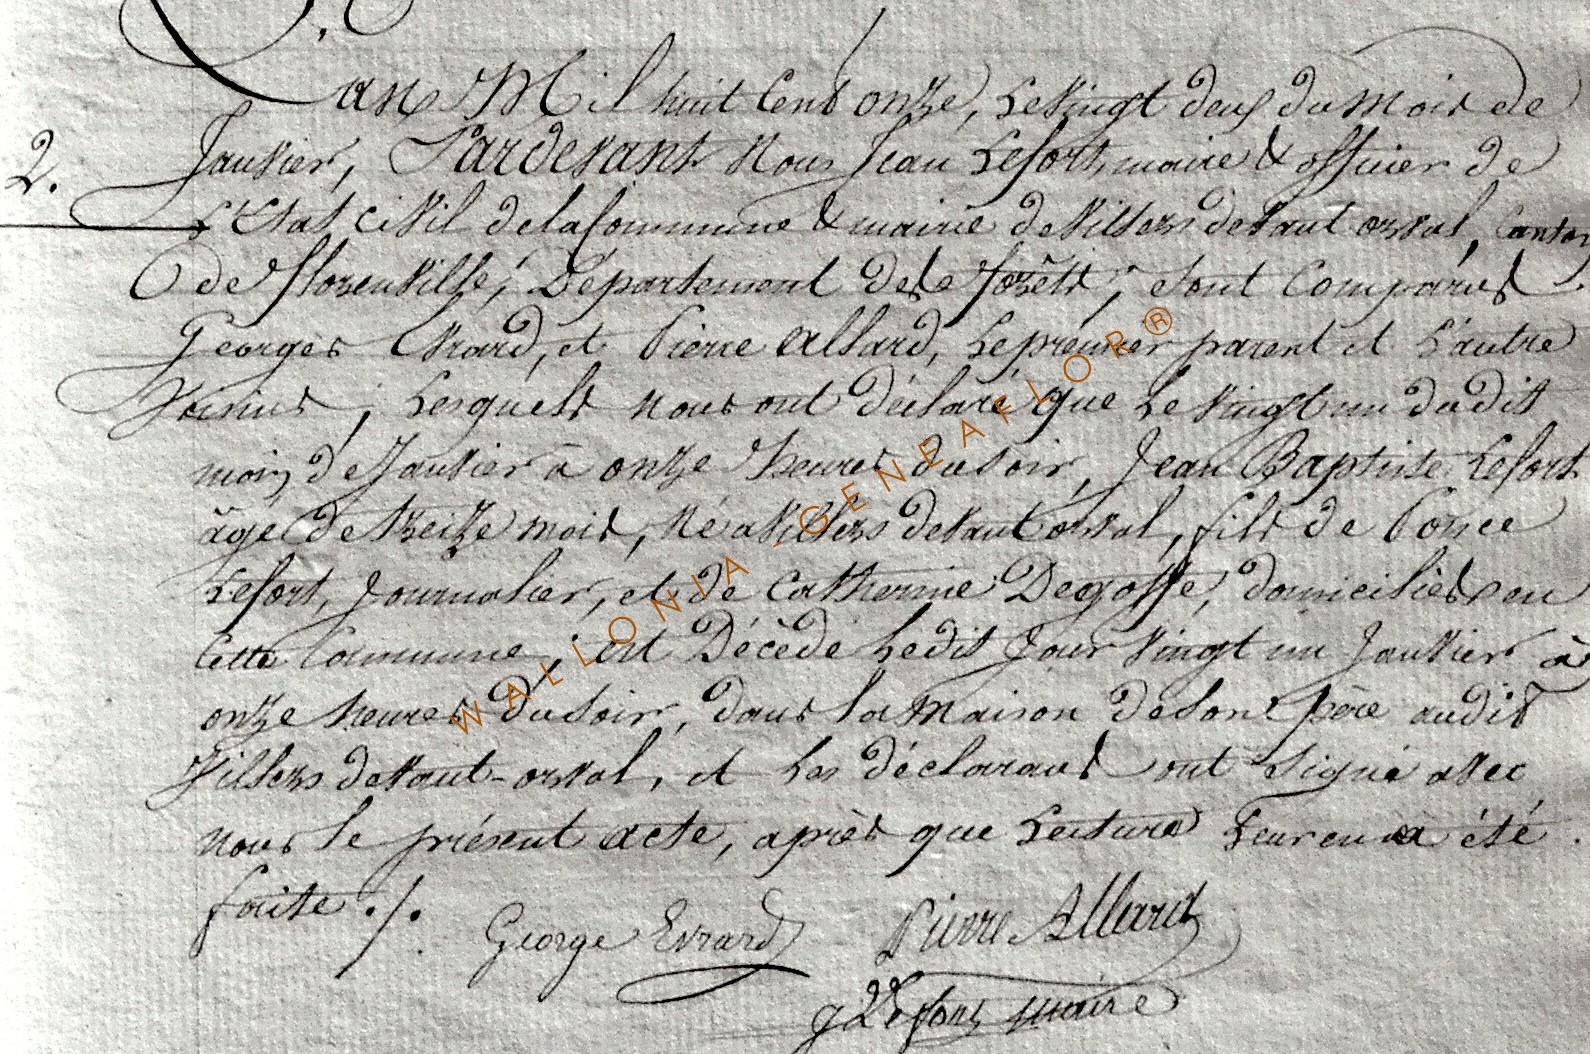 L'an Mil huit Cent onze, Le vingt deux du mois de
2. Janvier, Pardevant Nous Jean Lefort, maire & officier de
L'Etat civil de la Commune & mairie de Villers devant orval, Canton
de Florenville, Département des forêts, sont Comparus
Georges Evrard, et Pierre Allard, Le premier parent et L'autre
Voisins, Lesquels nous ont déclaré que Le vingt un dudit
mois de Janvier à onze heures du soir, Jean Baptiste Lefort
âgé de treize mois, Né a Villers devant orval, fils de Ponce
Lefort, Journalier, et de Catherine Degoffe, domiciliés en
Cette Commune, est Décédé Ledit Jour vingt un Janvier à
onze heures du soir, dans la maison de son Père audit
Villers devant-orval, et Les déclarans ont signé avec
nous le présent acte, après que Lecture Leur en a été
faite ./.
George Evrard Pierre Allard
Lefort maire
WALLONIA - GENEAFLOR ®